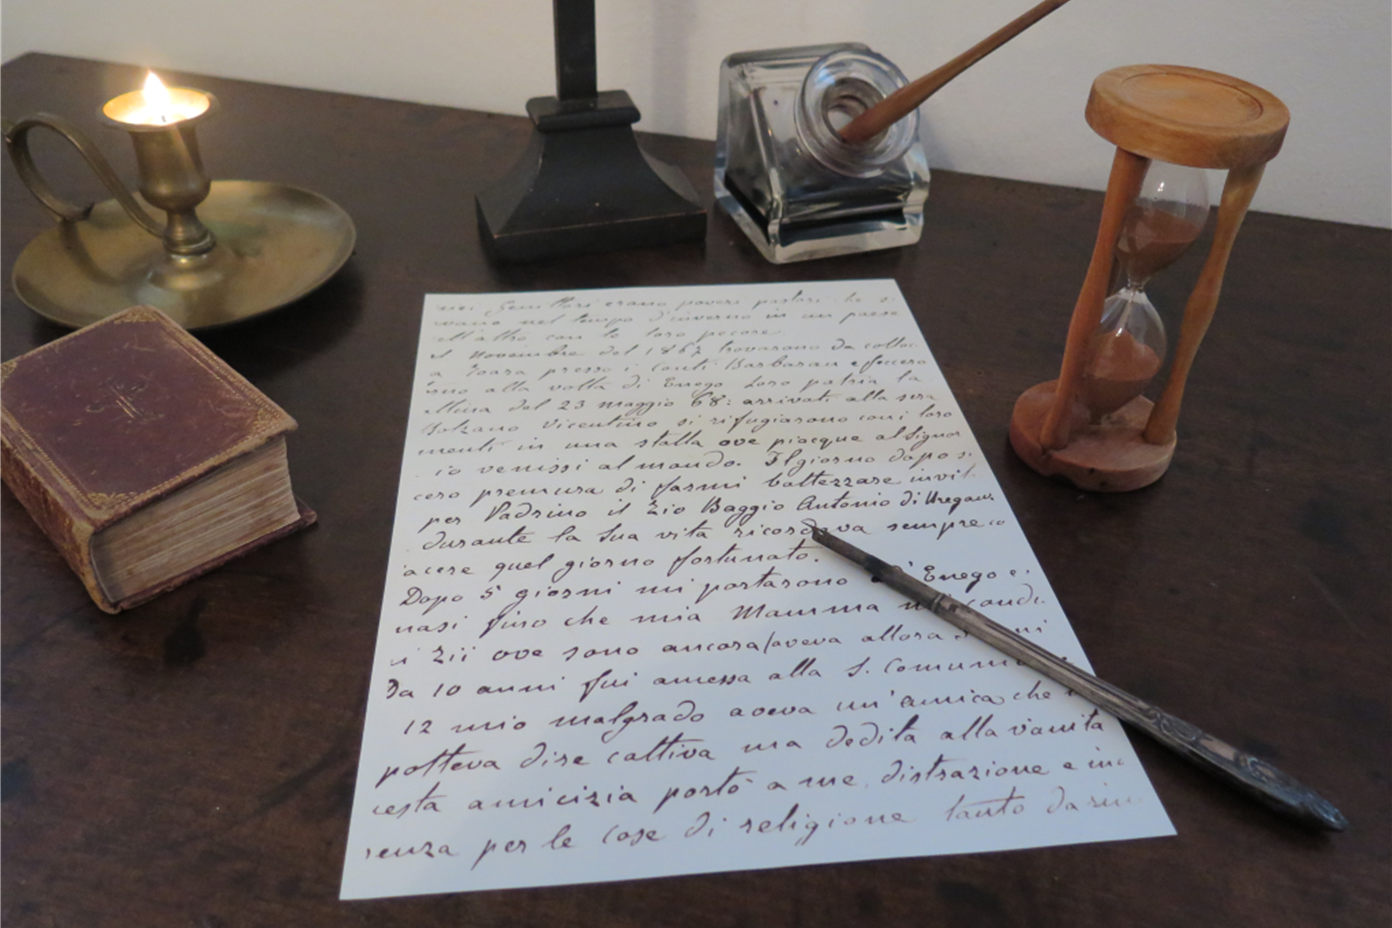 miei Genittori erano poveri pastori: he s
vano nel tempo d'inverno in un paese
all'altro con le loro pecore
el Novembre del 1867 trovarono da colloc
a Zoara presso i conti Barbaran e fecero
orno alla volta di Enego Loro patria la
attina del 23 maggio 68: arrivati alla sera
Bolzano Vicentino si rifugiarono coni loro
menti in una stalla ove piacque al Signor
io venissi al mondo. Il giorno dopo si
cero premura di farmi battezzare invit
per Padrino il zio Baggio Antonio di
durante la Sua vita ricordava sempre co
acere quel giorno fortunato.
Dopo 5 giorni mi portarono Enego e
masi fino che mia Mamma mi condu
i Zii ove sono ancora/aveva allora
Da 10 anni fui amessa alla S. comuni
12 mio malgrado aveva un'amica che
potteva dire cattiva ma dedita alla vanità
uesta amicizia portò a me, distrazione e in
renza per le cose di religione tanto da